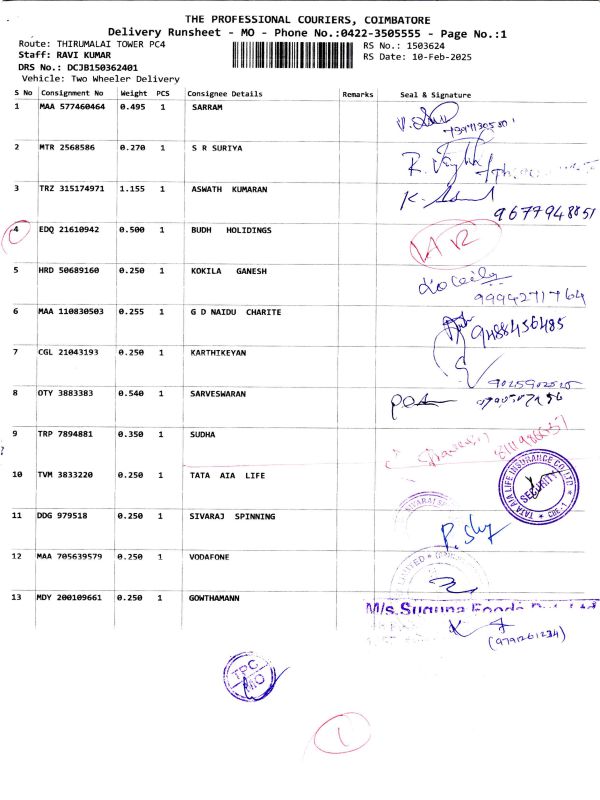 THE PROFESSIONAL COURIERS, COIMBATORE
Delivery Runsheet - MO - Phone No.:0422-3505555 - Page No.:1
Route: THIRUMALAI TOWER PC4 RS No.: 1503624
Staff: RAVI KUMAR RS Date: 10-Feb-2025
DRS No.: DCJB150362401
Vehicle: Two Wheeler Delivery
S No Consignment No Weight PCS Consignee Details Remarks Seal & Signature
1 MAA 577460464 0.495 1 SARRAM
2 MTR 2568586 0.270 1 S R SURIYA
3 TRZ 315174971 1.155 1 ASWATH KUMARAN
9677948851
4 EDQ 21610942 0.500 1 BUDH HOLIDINGS
5 HRD 50689160 0.250 1 KOKILA GANESH
9994271764
6 MAA 110830503 0.255 1 G D NAIDU CHARITE 9488456485
7 CGL 21043193 0.250 1 KARTHIKEYAN
8 OTY 3883383 0.540 1 SARVESWARAN
9 TRP 7894881 0.350 1 SUDHA
10 TVM 3833220 0.250 1 TATA AIA LIFE TATA AIA LIFE INSURANCE CO LTD SECURITY CBE-1
11 DDG 979518 0.250 1 SIVARAJ SPINNING
12 MAA 705639579 0.250 1 VODAFONE
13 MDY 200109661 0.250 1 GOWTHAMANN M/s.Suguna Foods
(9791261234)
TPC
MO
1